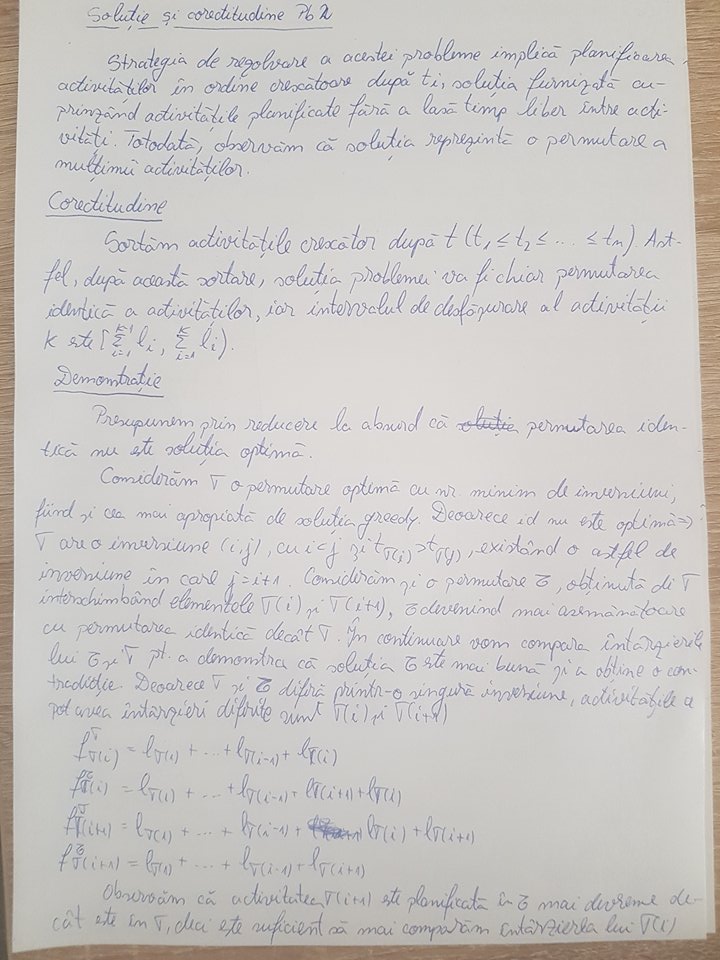 Soluție și corectitudine Pb 2
Strategia de rezolvare a acestei probleme implică planificarea
activităților în ordine crescătoare după ti, soluția furnizată cu-
prinzând activitățile planificate fără a lasă timp liber între acti-
vități. Totodată, observăm că soluția reprezintă o permutare a
mulțimii activităților.
Corectitudine
Sortăm activitățile crescător după t (t1 ≤ t2 ≤ ... ≤ tn). Ast-
fel, după această sortare, soluția problemei va fi chiar permutarea
identică a activităților, iar intervalul de desfășurare al activității
K este [∑_{i=1}^{K-1} li, ∑_{i=1}^{K} li).
Demonstrație
Presupunem prin reducere la absurd că permutarea iden-
tică nu este soluția optimă.
Considerăm σ o permutare optimă cu nr. minim de inversiuni,
fiind și cea mai apropiată de soluția greedy. Deoarece id nu este optimă =>
σ are o inversiune (i,j), cu i<j și tσ(i) > tσ(j), existând o astfel de
inversiune în care j=i+1. Considerăm și o permutare τ, obținută din σ
interschimbând elementele σ(i) și σ(i+1), τ devenind mai asemănătoare
cu permutarea identică decât σ. În continuare vom compara întârzierile
lui τ și σ pt. a demonstra că soluția τ este mai bună și a obține o con-
tradicție. Deoarece σ și τ diferă printr-o singură inversiune, activitățile ce
pot avea întârzieri diferite sunt σ(i) și σ(i+1)
f^σ_σ(i) = lσ(1) + ... + lσ(i-1) + lσ(i)
f^τ_σ(i) = lσ(1) + ... + lσ(i-1) + lσ(i+1) + lσ(i)
f^σ_σ(i+1) = lσ(1) + ... + lσ(i-1) + lσ(i) + lσ(i+1)
f^τ_σ(i+1) = lσ(1) + ... + lσ(i-1) + lσ(i+1)
Observăm că activitatea σ(i+1) este planificată în τ mai devreme de-
cât este în σ, deci este suficient să mai comparăm întârzierea lui σ(i)